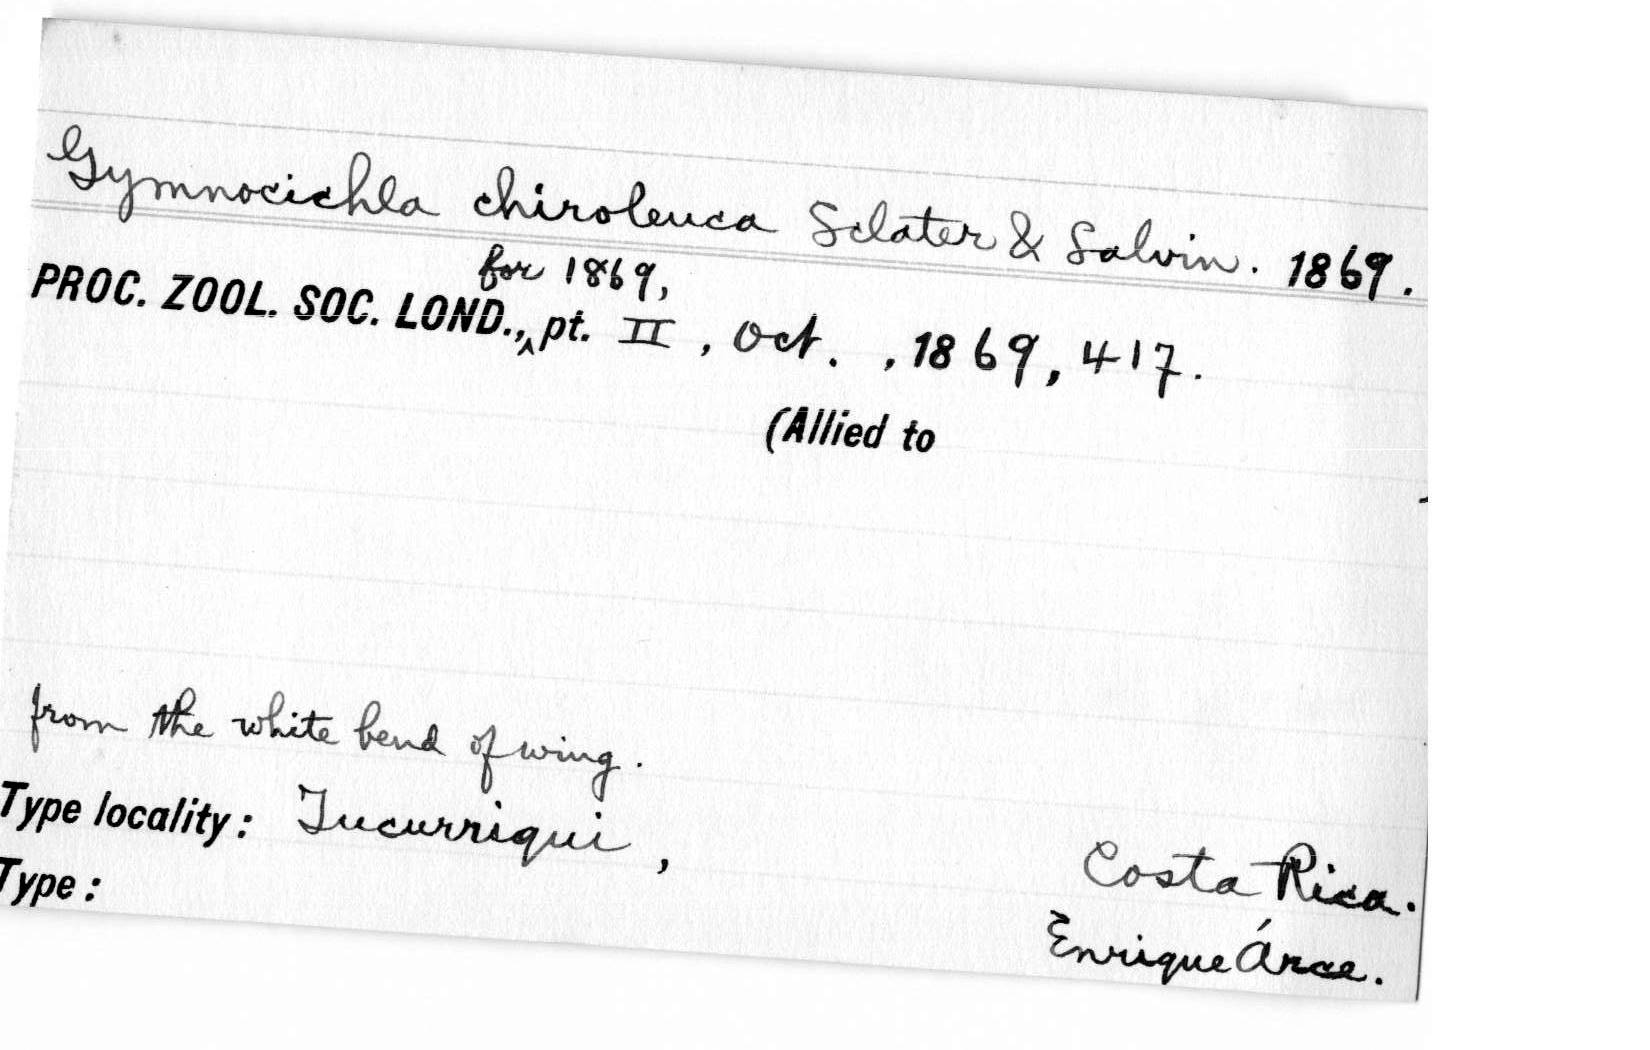 Gymnocichla chiroleuca Sclater & Salvin. 1869.
for 1869,
PROC. ZOOL. SOC. LOND.,^ pt. II, Oct. , 1869, 417.
(Allied to
from the white bend of wing.
Type locality: Tucurriqui, Costa Rica.
Type: Enrique Árce.